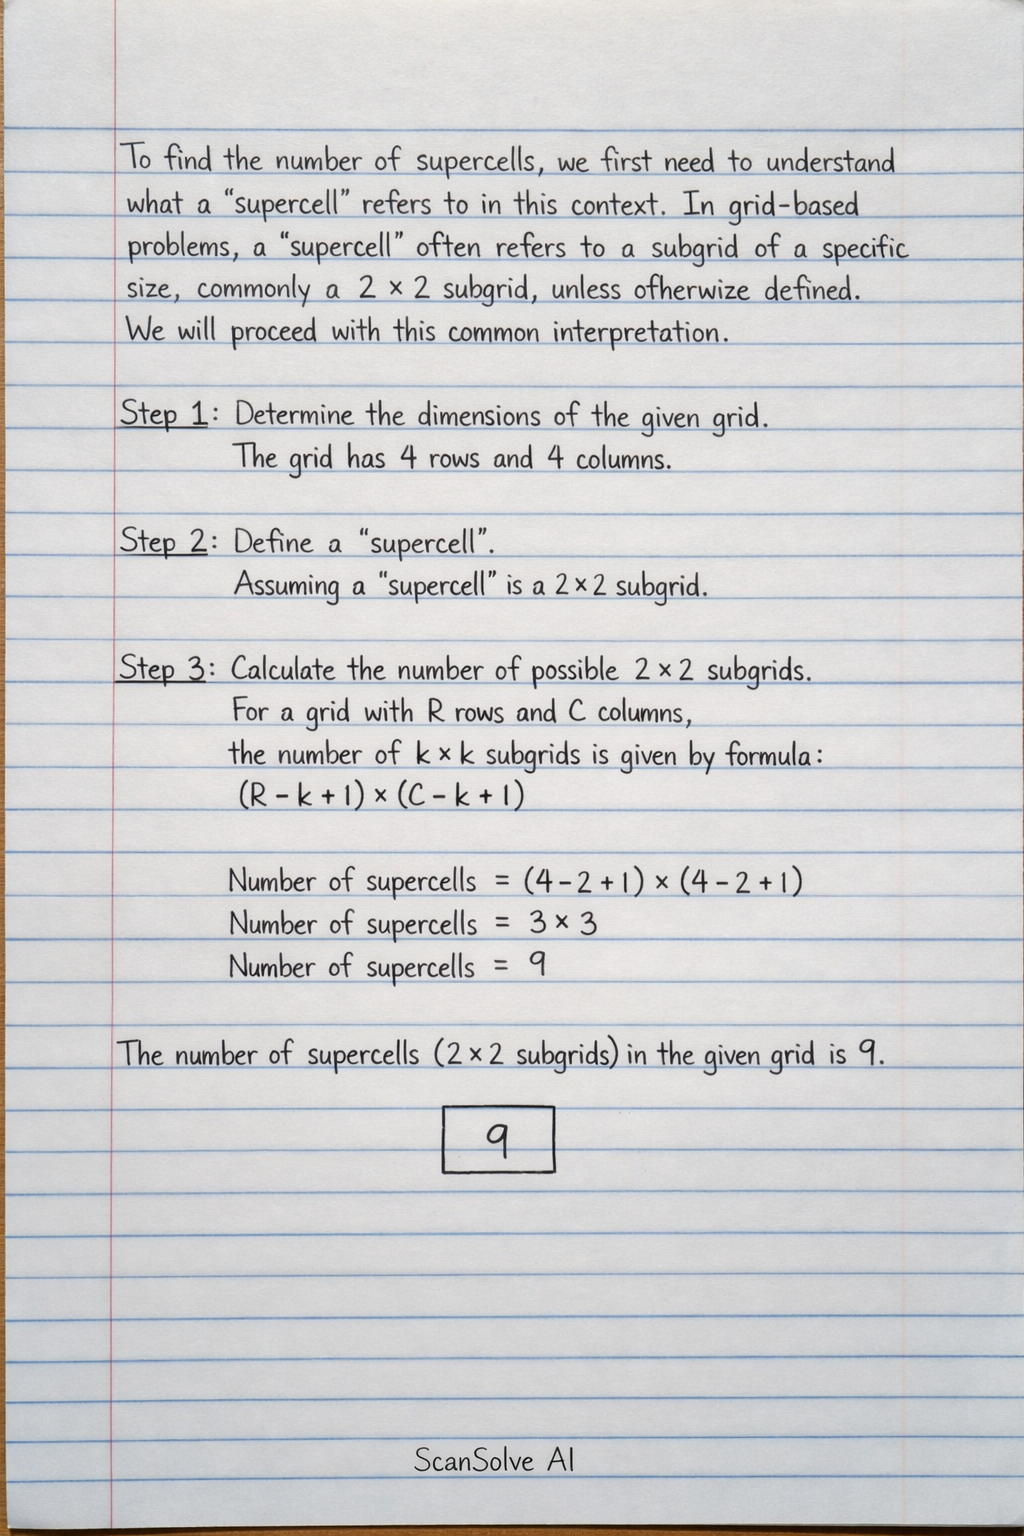 To find the number of supercells, we first need to understand
what a “supercell” refers to in this context. In grid-based
problems, a “supercell” often refers to a subgrid of a specific
size, commonly a 2 × 2 subgrid, unless ofherwize defined.
We will proceed with this common interpretation.
Step 1: Determine the dimensions of the given grid.
The grid has 4 rows and 4 columns.
Step 2: Define a “supercell”.
Assuming a “supercell” is a 2×2 subgrid.
Step 3: Calculate the number of possible 2 × 2 subgrids.
For a grid with R rows and C columns,
the number of k × k subgrids is given by formula:
(R – k + 1) × (C – k + 1)
Number of supercells = (4 – 2 + 1) × (4 – 2 + 1)
Number of supercells = 3 × 3
Number of supercells = 9
The number of supercells (2×2 subgrids) in the given grid is 9.
9
ScanSolve AI